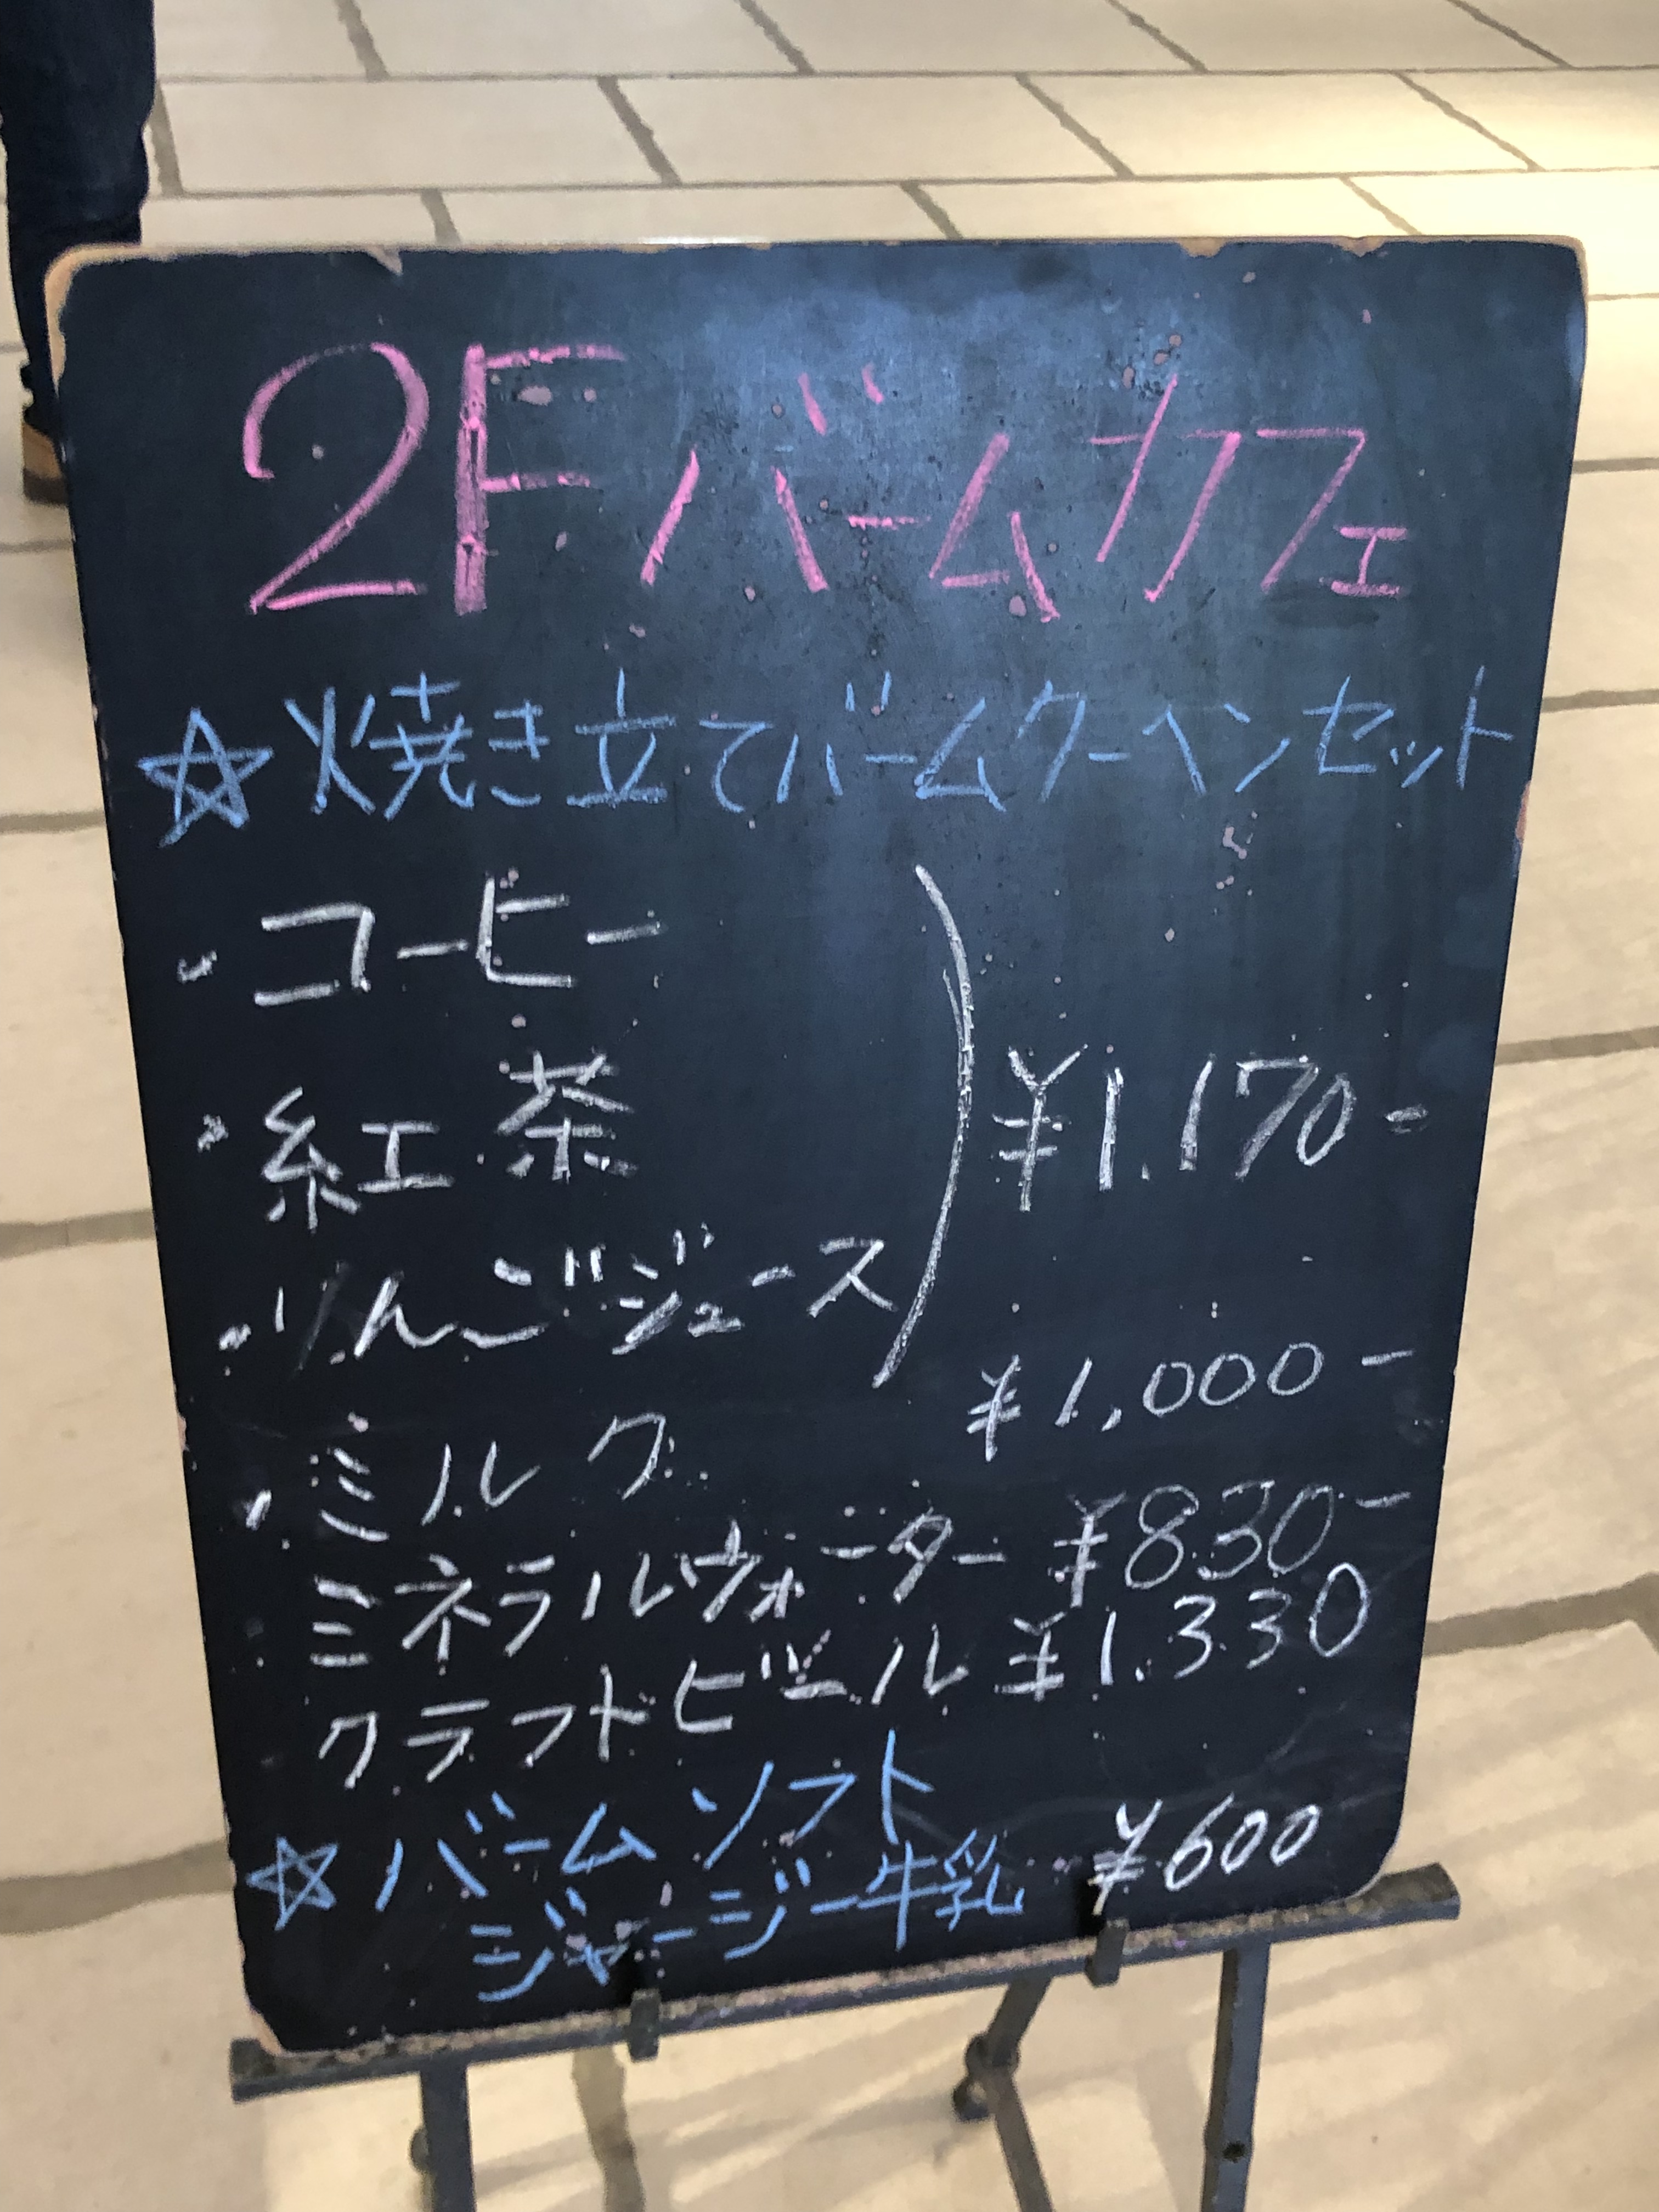 2Fバームカフェ
☆焼き立てバームクーヘンセット
・コーヒー
・紅茶 ¥1.170-
・りんごジュース
・ミルク ¥1,000-
ミネラルウォーター ¥830-
クラフトビール ¥1.330
☆バームソフト ¥600
ジャージー牛乳